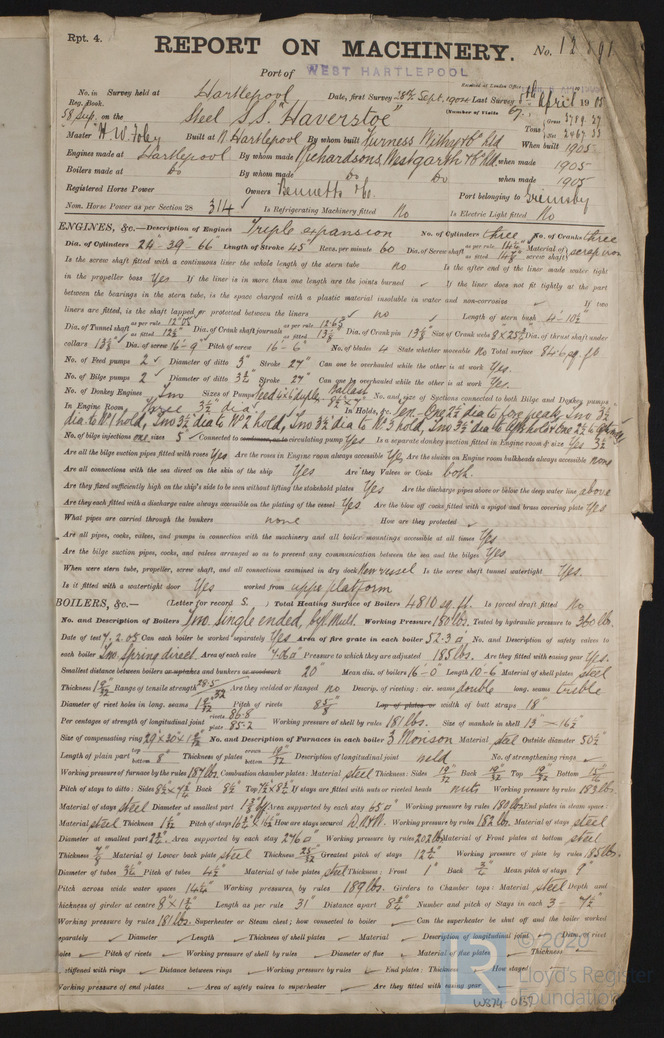 Rpt. 4.
REPORT ON MACHINERY.
No. 12891
Port of WEST HARTLEPOOL
Received at London Office
No. in Survey held at Hartlepool Date, first Survey 28th Sept. 1904 Last Survey 5th April 1905
Reg. Book. (Number of Visits 67)
58 Sup. on the Steel S.S. "Haverstoe" Tons Gross 3789.27 Net 2467.33
Master H. W. Foley Built at N. Hartlepool By whom built Furness Withy & Co Ltd When built 1905
Engines made at Hartlepool By whom made Richardsons, Westgarth & Co Ltd. when made 1905
Boilers made at do By whom made do do when made 1905
Registered Horse Power Owners Bennetts & Co. Port belonging to Grimsby
Nom. Horse Power as per Section 28 314 Is Refrigerating Machinery fitted No Is Electric Light fitted No
ENGINES, &c.—Description of Engines Triple expansion No. of Cylinders three No. of Cranks three
Dia. of Cylinders 24"-39"-66" Length of Stroke 45" Revs. per minute 60 Dia. of Screw shaft as per rule as fitted Material of screw shaft scrap iron
Is the screw shaft fitted with a continuous liner the whole length of the stern tube no Is the after end of the liner made water tight
in the propeller boss Yes If the liner is in more than one length are the joints burned If the liner does not fit tightly at the part
between the bearings in the stern tube, is the space charged with a plastic material insoluble in water and non-corrosive If two
liners are fitted, is the shaft lapped or protected between the liners no Length of stern bush 4'-10½"
Dia. of Tunnel shaft as per rule as fitted Dia. of Crank shaft journals as per rule 12.63 as fitted 13⅜ Dia. of Crank pin 13⅜ Size of Crank webs Dia. of thrust shaft under
collars 13⅜ Dia. of screw 16-9" Pitch of screw 16-6" No. of blades 4 State whether moveable No Total surface 84.6 sq. ft
No. of Feed pumps 2 Diameter of ditto 3" Stroke 27" Can one be overhauled while the other is at work Yes.
No. of Bilge pumps 2 Diameter of ditto 3½" Stroke 27" Can one be overhauled while the other is at work Yes.
No. of Donkey Engines Two Sizes of Pumps Feed 4x6 duplex Ballast No. and size of Suctions connected to both Bilge and Donkey pumps
In Engine Room Three 3½" dia In Holds, &c. Ten. One 2½" dia to fore peak, Two 3½"
dia to No 1 hold, Two 3½" dia to No 2 hold, Two 3½" dia to No 3 hold, Two 3½" dia to aft hold & One 2½ to
No. of bilge injections one sizes 5 Connected to condenser, or to circulating pump Yes Is a separate donkey suction fitted in Engine room & size Yes 3½
Are all the bilge suction pipes fitted with roses Yes Are the roses in Engine room always accessible Yes Are the sluices on Engine room bulkheads always accessible none
Are all connections with the sea direct on the skin of the ship Yes Are they Valves or Cocks both.
Are they fixed sufficiently high on the ship's side to be seen without lifting the stokehold plates Yes Are the discharge pipes above or below the deep water line above
Are they each fitted with a discharge valve always accessible on the plating of the vessel Yes Are the blow off cocks fitted with a spigot and brass covering plate Yes
What pipes are carried through the bunkers none How are they protected
Are all pipes, cocks, valves, and pumps in connection with the machinery and all boiler mountings accessible at all times Yes
Are the bilge suction pipes, cocks, and valves arranged so as to prevent any communication between the sea and the bilges Yes
When were stern tube, propeller, screw shaft, and all connections examined in dry dock New vessel Is the screw shaft tunnel watertight Yes.
Is it fitted with a watertight door Yes worked from upper platform
BOILERS, &c.— (Letter for record S. ) Total Heating Surface of Boilers 4810 sq. ft. Is forced draft fitted No.
No. and Description of Boilers Two single ended, Cyl Mult. Working Pressure 180 lbs. Tested by hydraulic pressure to 360 lbs.
Date of test 7.2.05 Can each boiler be worked separately Yes Area of fire grate in each boiler 52.3 □ No. and Description of safety valves to
each boiler Two, Spring direct Area of each valve 7.06 □" Pressure to which they are adjusted 185 lbs. Are they fitted with easing gear Yes.
Smallest distance between boilers or uptakes and bunkers or woodwork 20" Mean dia. of boilers 16-0" Length 10-6" Material of shell plates Steel
Thickness Range of tensile strength 28.5/32 Are they welded or flanged no Descrip. of riveting: cir. seams double long. seams treble
Diameter of rivet holes in long. seams Pitch of rivets 8⅝" Lap of plates or width of butt straps 18"
Per centages of strength of longitudinal joint rivets 86.8 plate 85.2 Working pressure of shell by rules 181 lbs. Size of manhole in shell 13" x 16½"
Size of compensating ring No. and Description of Furnaces in each boiler 3 Morison Material steel Outside diameter 50½"
Length of plain part top bottom 8" Thickness of plates crown bottom 19/32 Description of longitudinal joint weld No. of strengthening rings
Working pressure of furnace by the rules 187 lbs Combustion chamber plates: Material steel Thickness: Sides 19/32 Back 19/32 Top 19/32 Bottom
Pitch of stays to ditto: Sides Back Top If stays are fitted with nuts or riveted heads nuts Working pressure by rules 183 lbs.
Material of stays steel Diameter at smallest part Area supported by each stay 65 □" Working pressure by rules 180 lbs End plates in steam space:
Material steel Thickness Pitch of stays How are stays secured D.N&W. Working pressure by rules 182 lbs. Material of stays steel
Diameter at smallest part Area supported by each stay 276 □" Working pressure by rules 202 lbs Material of Front plates at bottom steel
Thickness ⅞" Material of Lower back plate steel Thickness Greatest pitch of stays 12½" Working pressure of plate by rules 185 lbs.
Diameter of tubes 3¼" Pitch of tubes 4½" Material of tube plates steel Thickness: Front 1" Back ¾" Mean pitch of stays 9"
Pitch across wide water spaces 14½" Working pressures by rules 189 lbs. Girders to Chamber tops: Material steel Depth and
thickness of girder at centre Length as per rule 31" Distance apart 8¾" Number and pitch of Stays in each 3 - 7½
Working pressure by rules 181 lbs. Superheater or Steam chest; how connected to boiler Can the superheater be shut off and the boiler worked
separately Diameter Length Thickness of shell plates Material Description of longitudinal joint Diam. of rivet
holes Pitch of rivets Working pressure of shell by rules Diameter of flue Material of flue plates Thickness
stiffened with rings Distance between rings Working pressure by rules End plates: Thickness How stayed
Working pressure of end plates Area of safety valves to superheater Are they fitted with easing gear
© 2020
Lloyd's Register
Foundation
W374-0137